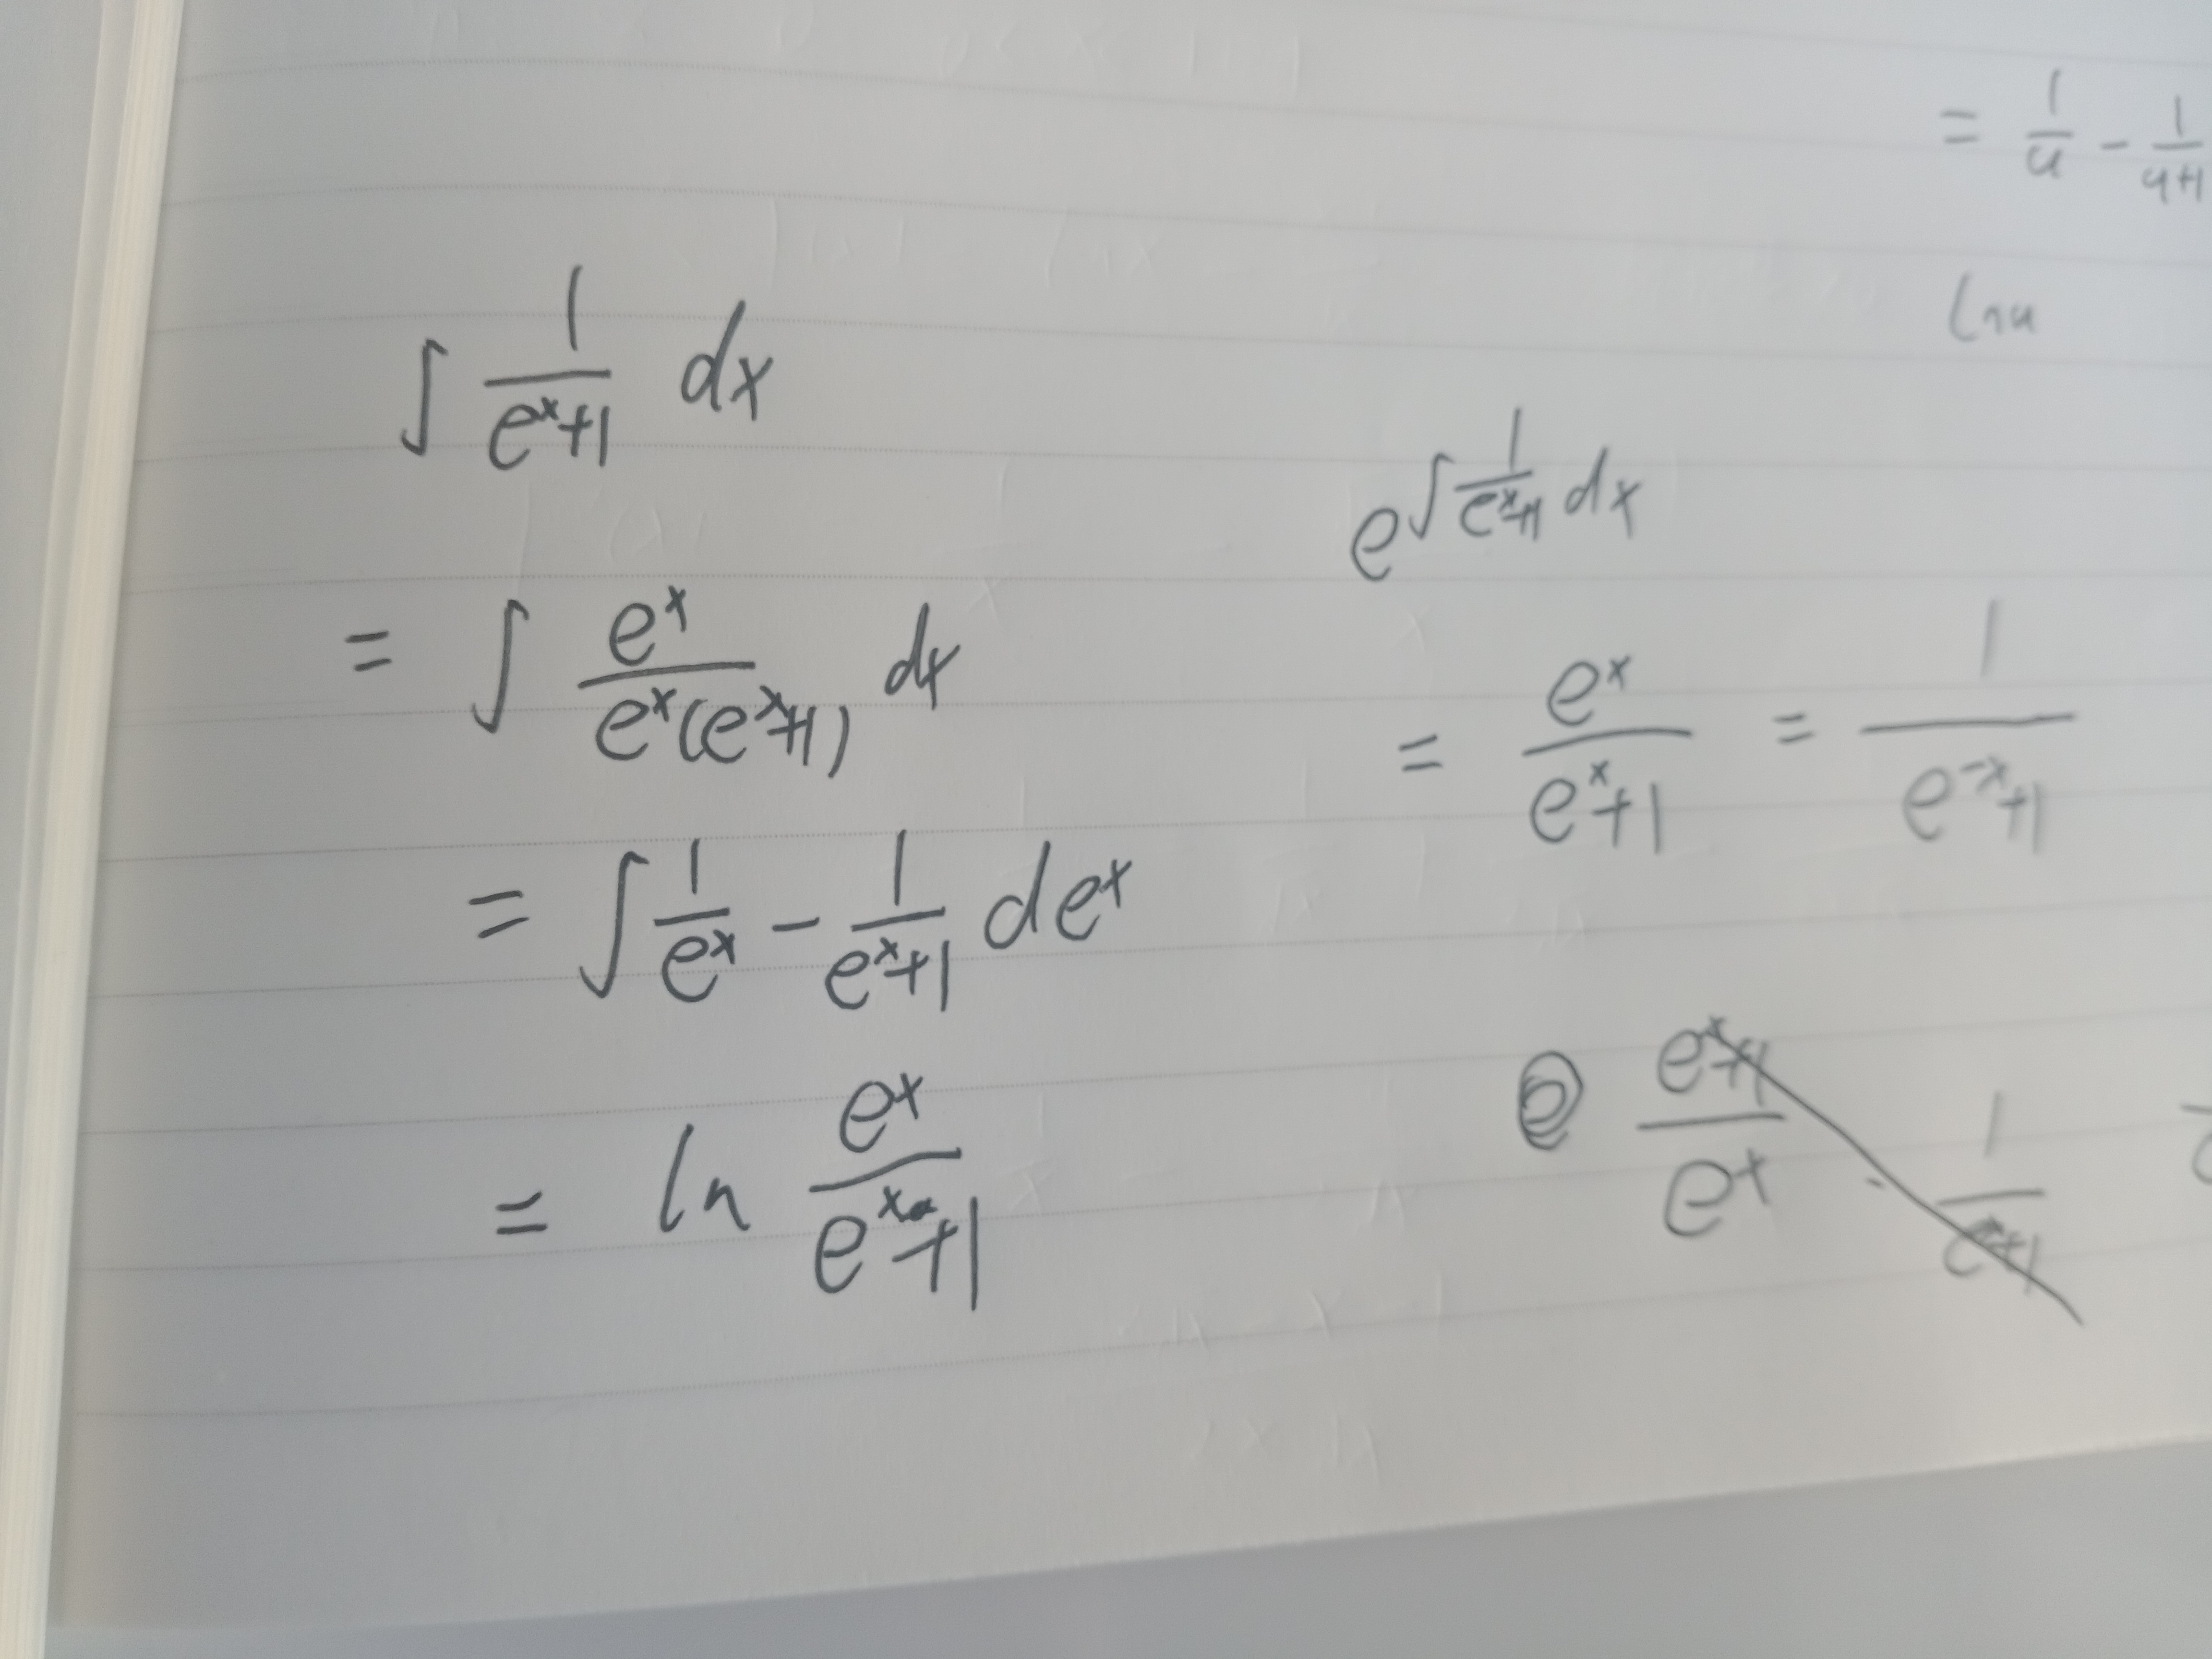 = 1/u - 1/u+1
lnu
∫ 1/e^x+1 dx
= ∫ e^x/e^x(e^x+1) dx
= ∫ 1/e^x - 1/e^x+1 de^x
= ln e^x/e^x+1
e^∫ 1/e^x+1 dx
= e^x/e^x+1 = 1/e^-x+1
e^x+1/e^x · 1/e^x+1